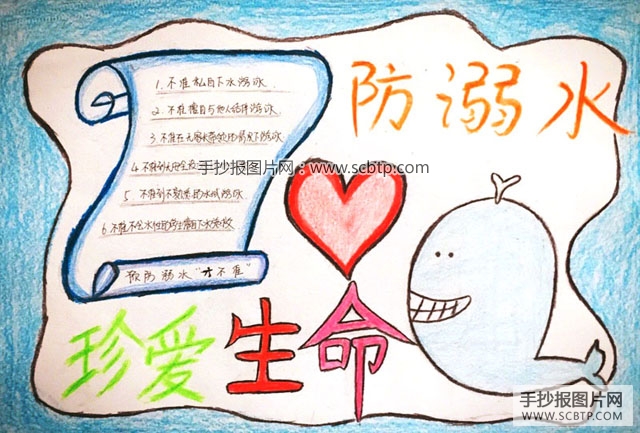 防溺水
1. 不准私自下水游泳
2. 不准擅自与他人结伴游泳
3. 不准在无家长带领的情况下游泳
4. 不准到无安全设
手抄报图片网:www.scbtp.com
5 不准到不熟悉的水域游泳
6. 不准不会水性的学生擅自下水施救
预防溺水“六不准”
珍爱生命
手抄报图片网
WWW.SCBTP.COM